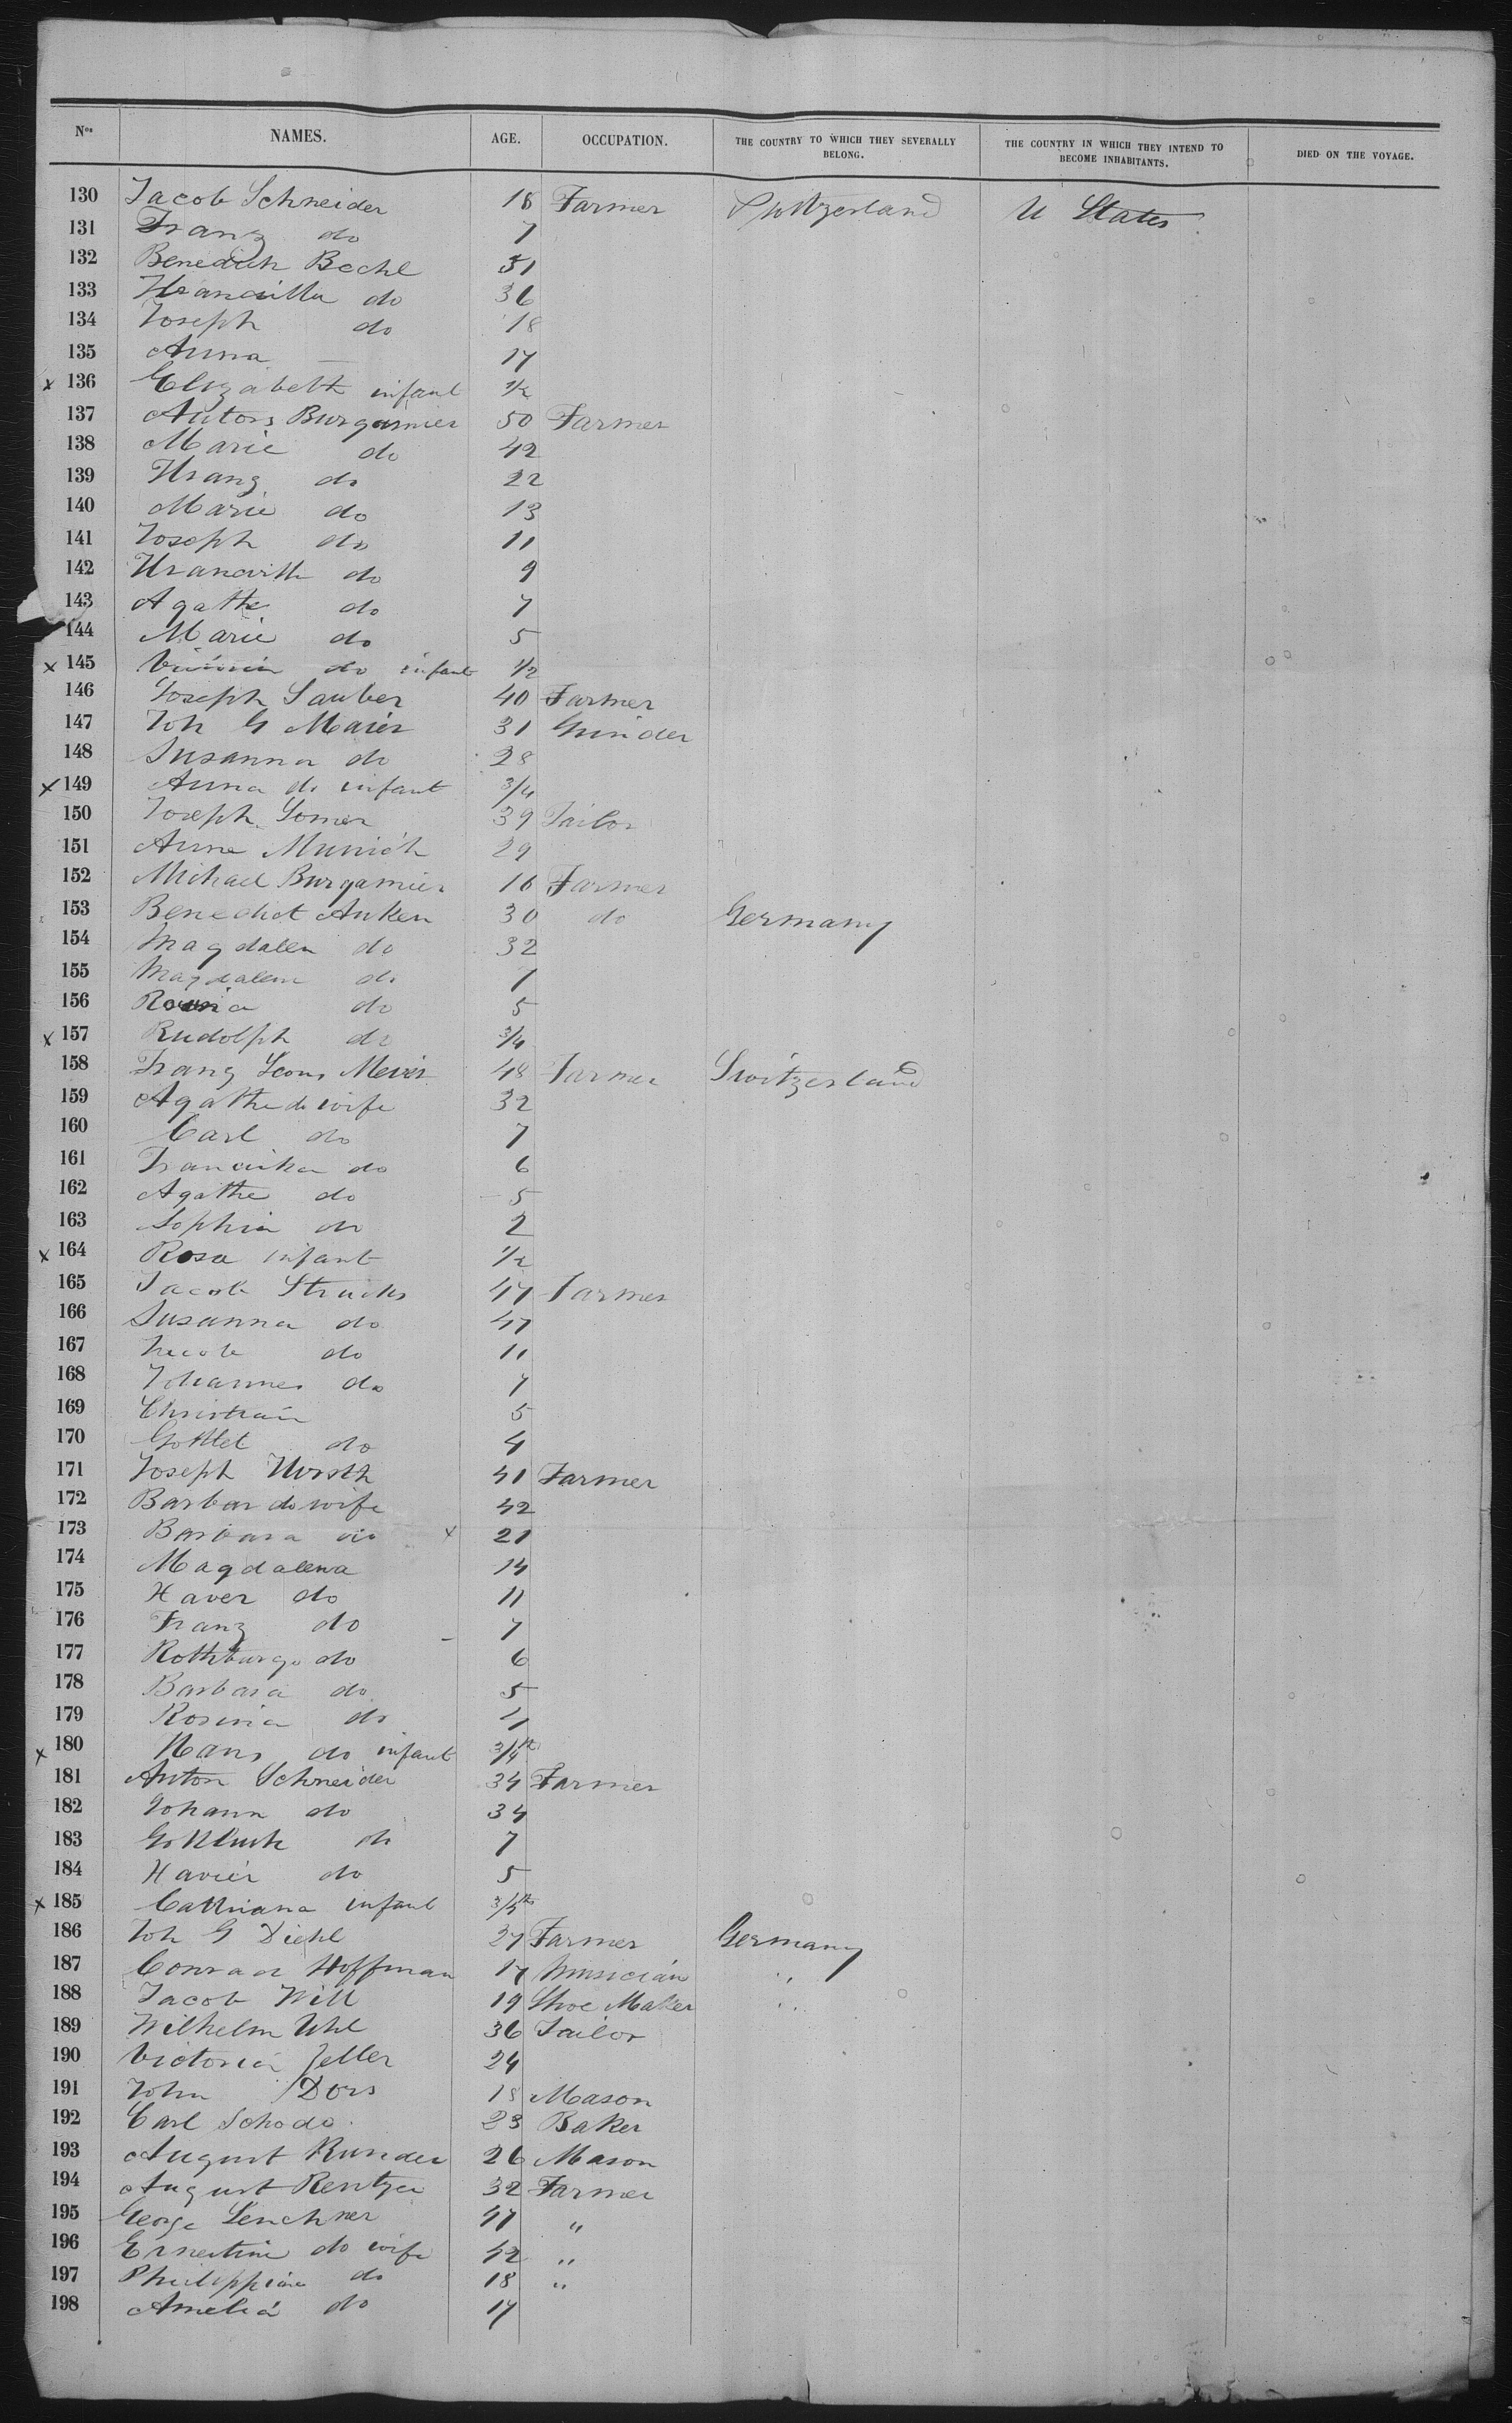 Nos NAMES. AGE. OCCUPATION. THE COUNTRY TO WHICH THEY SEVERALLY BELONG. THE COUNTRY IN WHICH THEY INTEND TO BECOME INHABITANTS. DIED ON THE VOYAGE.
130 Jacob Schneider 18 Farmer Switzerland U States
131 Franz do 7
132 Benedich Bochl 51
133 do 36
134 Joseph do 18
135 Anna — 17
x 136 Elizabeth infant 1/2
137 Anton Burgamier 50 Farmer
138 Marie do 42
139 Franz do 22
140 Marie do 13
141 Joseph do 11
142 do 9
143 Agathe do 7
144 Marie do 5
x 145 do infant 1/2
146 Joseph Sauber 40 Farmer
147 Joh G Maier 31 Grinder
148 Susanna do 28
x 149 Anna do infant 3/4
150 Joseph Somer 39 Tailor
151 Anna Munich 29
152 Michael Burgamier 16 Farmer
153 Benedict Anken 30 do Germany
154 Magdalen do 32
155 Magdalena do 1
156 do 5
x 157 Rudolph do 3/4
158 Franz Leons Meier 48 Farmer Switzerland
159 Agathe do wife 32
160 Carl do 7
161 Franciska do 6
162 Agathe do 5
163 Sophia do 2
x 164 Rosa infant 1/2
165 Jacob Strucks 47 Farmer
166 Susanna do 47
167 do 11
168 Johannes do 7
169 Christian 5
170 Gottlet do 4
171 Joseph Hirsth 41 Farmer
172 Barbar do wife 42
173 Barbara do x 21
174 Magdalena 14
175 Xaver do 11
176 Franz do 7
177 Rothburga do 6
178 Barbara do 5
179 Rosina do 4
x 180 Hans do infant 3/4
181 Anton Schneider 34 Farmer
182 Johann do 34
183 do 7
184 Xavier do 5
x 185 infant
186 Joh G Diehl 27 Farmer Germany
187 Conrad Hoffman 17 Musician "
188 Jacob Will 19 Shoe Maker "
189 Wilhelm Uhl 36 Tailor
190 Victoria Zeller 24
191 John Dors 18 Mason
192 Carl Schode 23 Baker
193 August Runder 26 Mason
194 August Rentzer 32 Farmer
195 George Lenchner 47 "
196 Ernestine do wife 42 "
197 Philippine do 18 "
198 Amelia do 17